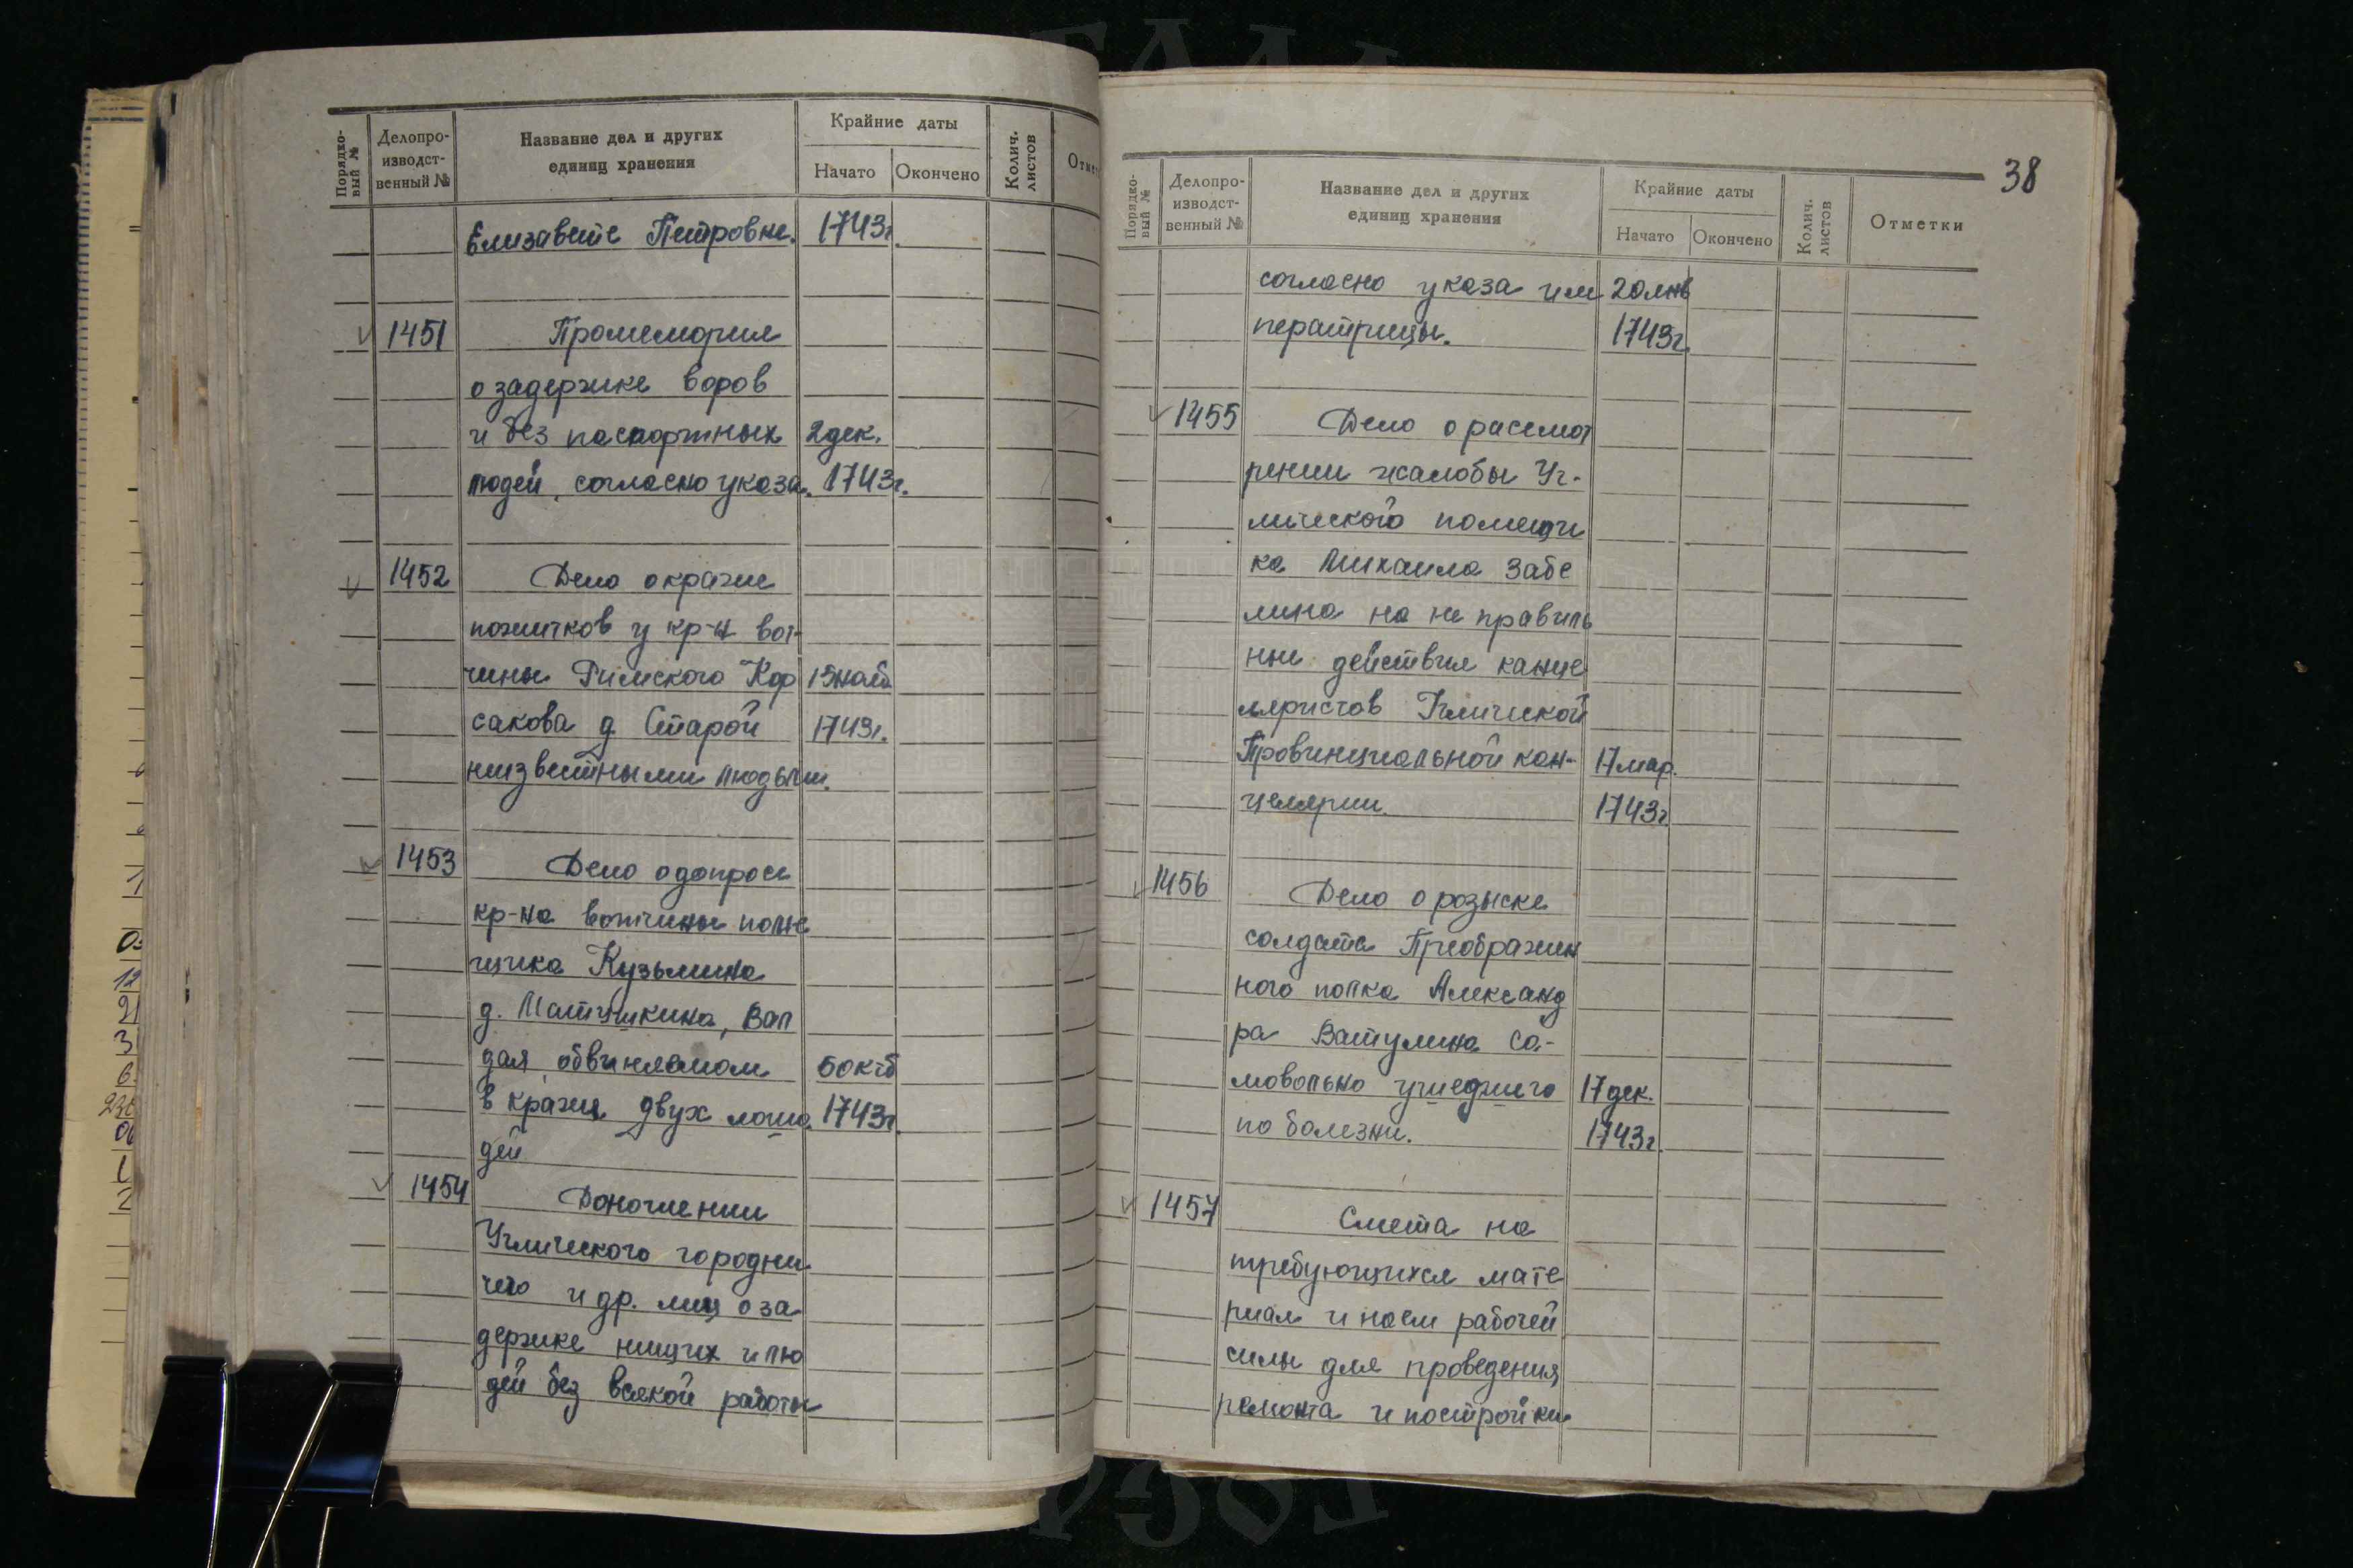 Порядко-
вый №
Делопро-
изводст-
венный №
Название дел и других
единиц хранения
Крайние даты
Начато
Окончено
Колич.
листов
Елизавете Петровне. 1743г.
1451 Промемория
о задержке воров
и без паспортных 2 дек.
людей, согласно указа. 1743г.
1452 Дело о краже
пожитков у кр-н вот-
чины Римского Кор 15 нояб
сакова д. Старой 1743г.
неизвестными людьми.
1453 Дело о допросе
кр-на вотчины поме
щика Кузьмина
д. Матушкина,
обвиняемом 5 октб
в краже двух лоша 1743г.
дей
1454
Угличского городни
чего и др. лиц о за
держке нищих и лю
дей без всякой работы
38
Порядко-
вый №
Делопро-
изводст-
венный №
Название дел и других
единиц хранения
Крайние даты
Начато
Окончено
Колич.
листов
Отметки
согласно указа им 20 янв
ператрицы. 1743г.
1455 Дело о рассмот
рении жалобы Уг-
личского помещи
ка Михаила Забе
лина на не правиль
ные действия канце
ляристов Угличской
Провинциальной кан- 17 мар.
целярии. 1743г
1456 Дело о розыске
солдата Преображен
ного полка Александ
ра Ватулина са-
мовольно ушедшего 17 дек.
по болезни. 1743г.
1457 Смета на
требующихся мате
риал и наем рабочей
силы для проведения
ремонта и постройки